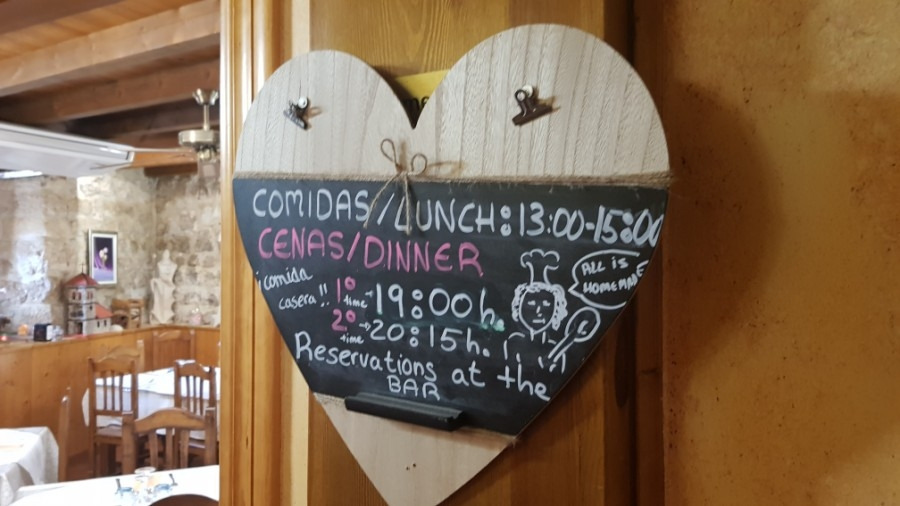 COMIDAS/LUNCH: 13:00-15:00
CENAS/DINNER
¡comida
casera!!
1º time → 19:00h.
2º time → 20:15h.
ALL is
HOMEMADE
Reservations at the
BAR